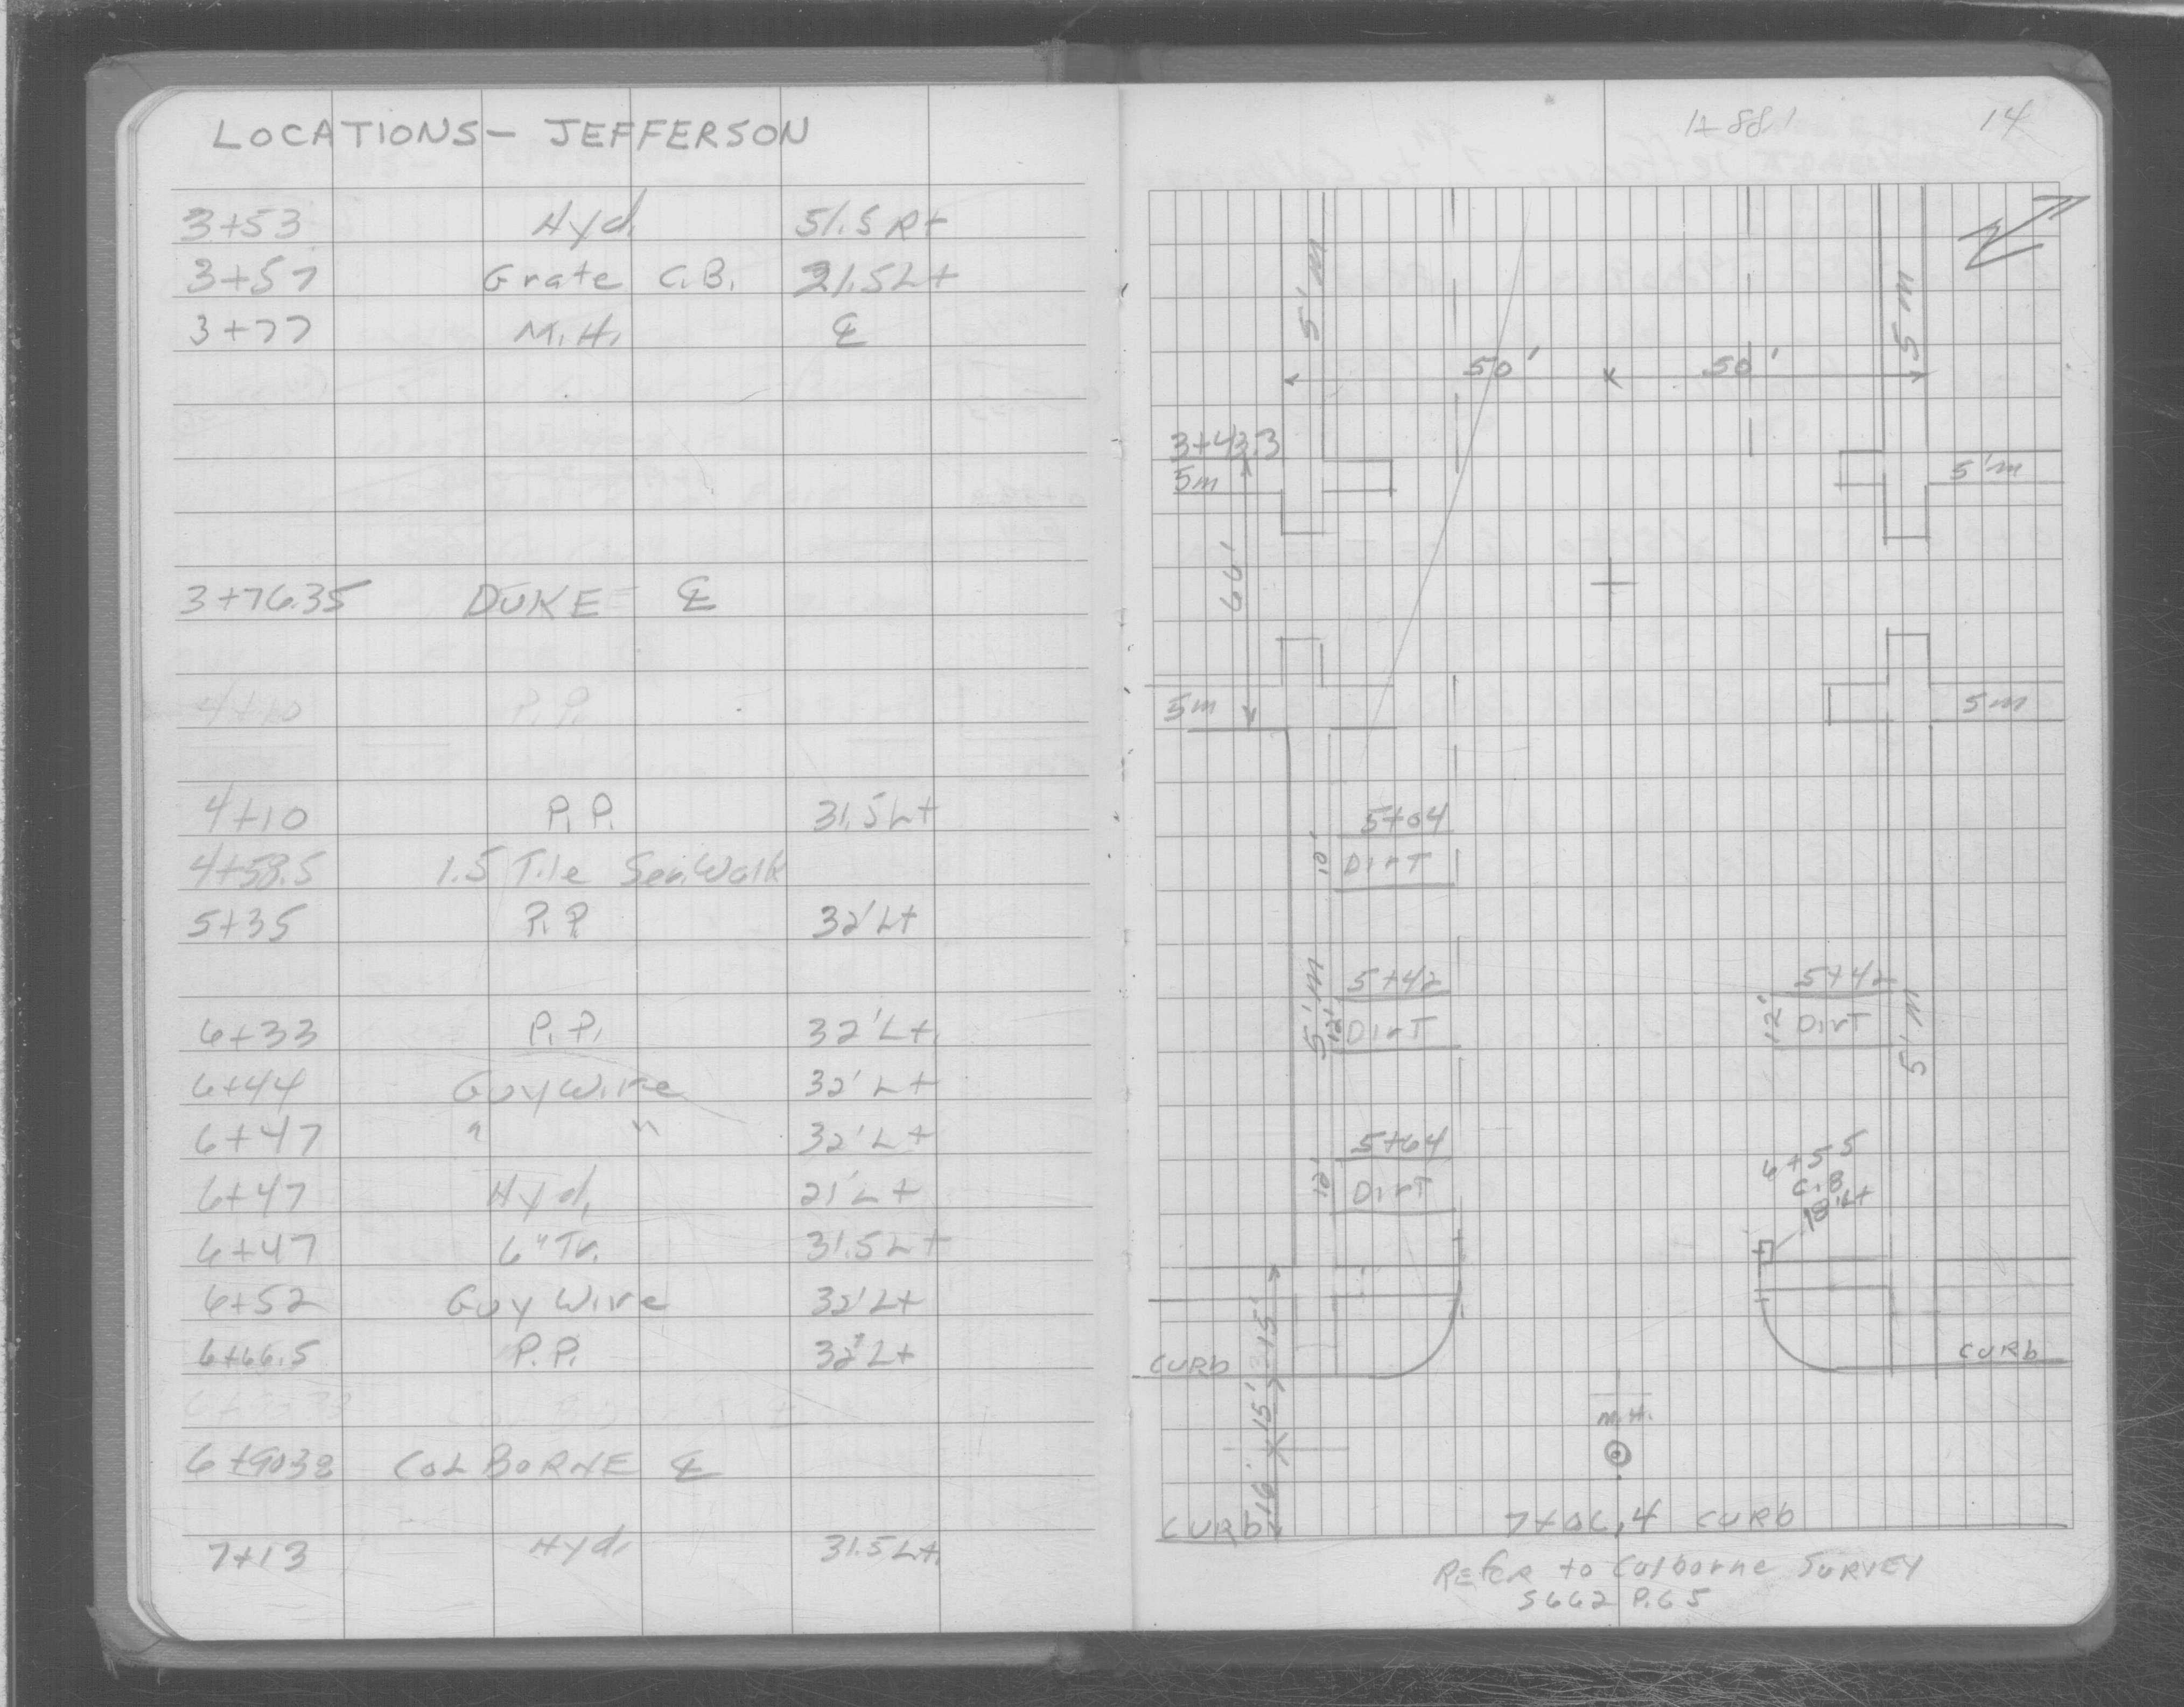 LOCATIONS - JEFFERSON
3+53 Hyd. 51.5 Rt
3+57 Grate C.B. 21.5 Lt
3+77 M.H. ℄
3+76.35 DUKE ℄
4+10 P.P.
4+10 P.P. 31.5 Lt
4+58.5 1.5 Tile Walk
5+35 P.P. 32' Lt
6+33 P.P. 32' Lt.
6+44 Guy Wire 32' Lt
6+47 " " 32' Lt
6+47 Hyd. 21' Lt
6+47 6" Tr. 31.5 Lt
6+52 Guy Wire 32' Lt
6+66.5 P.P. 32' Lt
6+90.38 COLBORNE ℄
7+13 Hyd. 31.5 Lt.
14
5' m
5' m
50' 50'
3+43.3
5m
5'm
66'
5m
5m
5+04
10' Dirt
5+42
5' m 12' Dirt
5+42
12' Dirt
5' m
5+64
12' Dirt
6+55
C.B.
18' Lt
15'
CURB
CURB
15'
M.H.
16'
CURB
7+06.4 CURB
REFER to Colborne SURVEY
S662 P.65